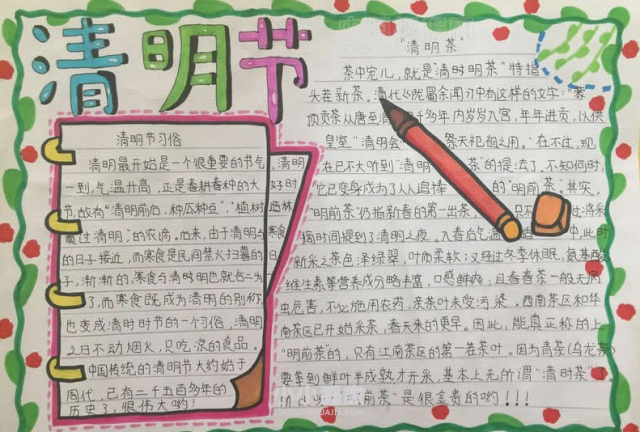 清明节
清明节习俗
清明最开始是一个很重要的节气 清明
一到,气温升高,正是春耕春种的大 好时
节,故有"清明前后,种瓜种点"、"植树 造林,
莫过清明"的农谚。后来,由于清明与寒食
的日子接近,而寒食是民间禁火扫墓的 日
子,渐渐的,寒食与清时明也就合二为
了,而寒食既成为清明的别称,
也变成清时时节的一个习俗,清明
之日不动烟火,只吃凉的食品。
中国传统的清明节大约始于
周代,已有二千五百多年的
历史了,很伟大哟!
"清明茶"
茶中宠儿,就是"清时明茶"特指
头茬新茶。清代 陇蜀余闻 中有这样的文字:"蒙
顶贡茶从唐至清 千多年内岁岁入宫,年年进贡,以供
皇室"清明会" 祭天祀祖之用。"在不过,现
在已不大听到"清明 茶"的提法了,不知何时,
它已变身成为了人人追捧 的"明前茶"。其实,
"明前茶"仍指新春的第一出茶, 只不
摘时间提到了清明之夜。入春后气温 中,此时
新采之茶色泽绿翠,叶质柔软;又经过冬季休眠,氨基酸
维生素等营养成分略丰富,口感鲜爽,且春春茶一般无病
虫危害,不必施用农药,亲茶叶未受污染。西南茶区和华
南茶区已开始采茶,春天来的更早。因此,能真正称的上
"明前茶的",只有江南茶区的第一茬茶叶。因为青茶(乌龙茶)
要拿到鲜叶半成熟才开采,基本上无所谓"清时茶"
前茶"是很金贵的哟!!!